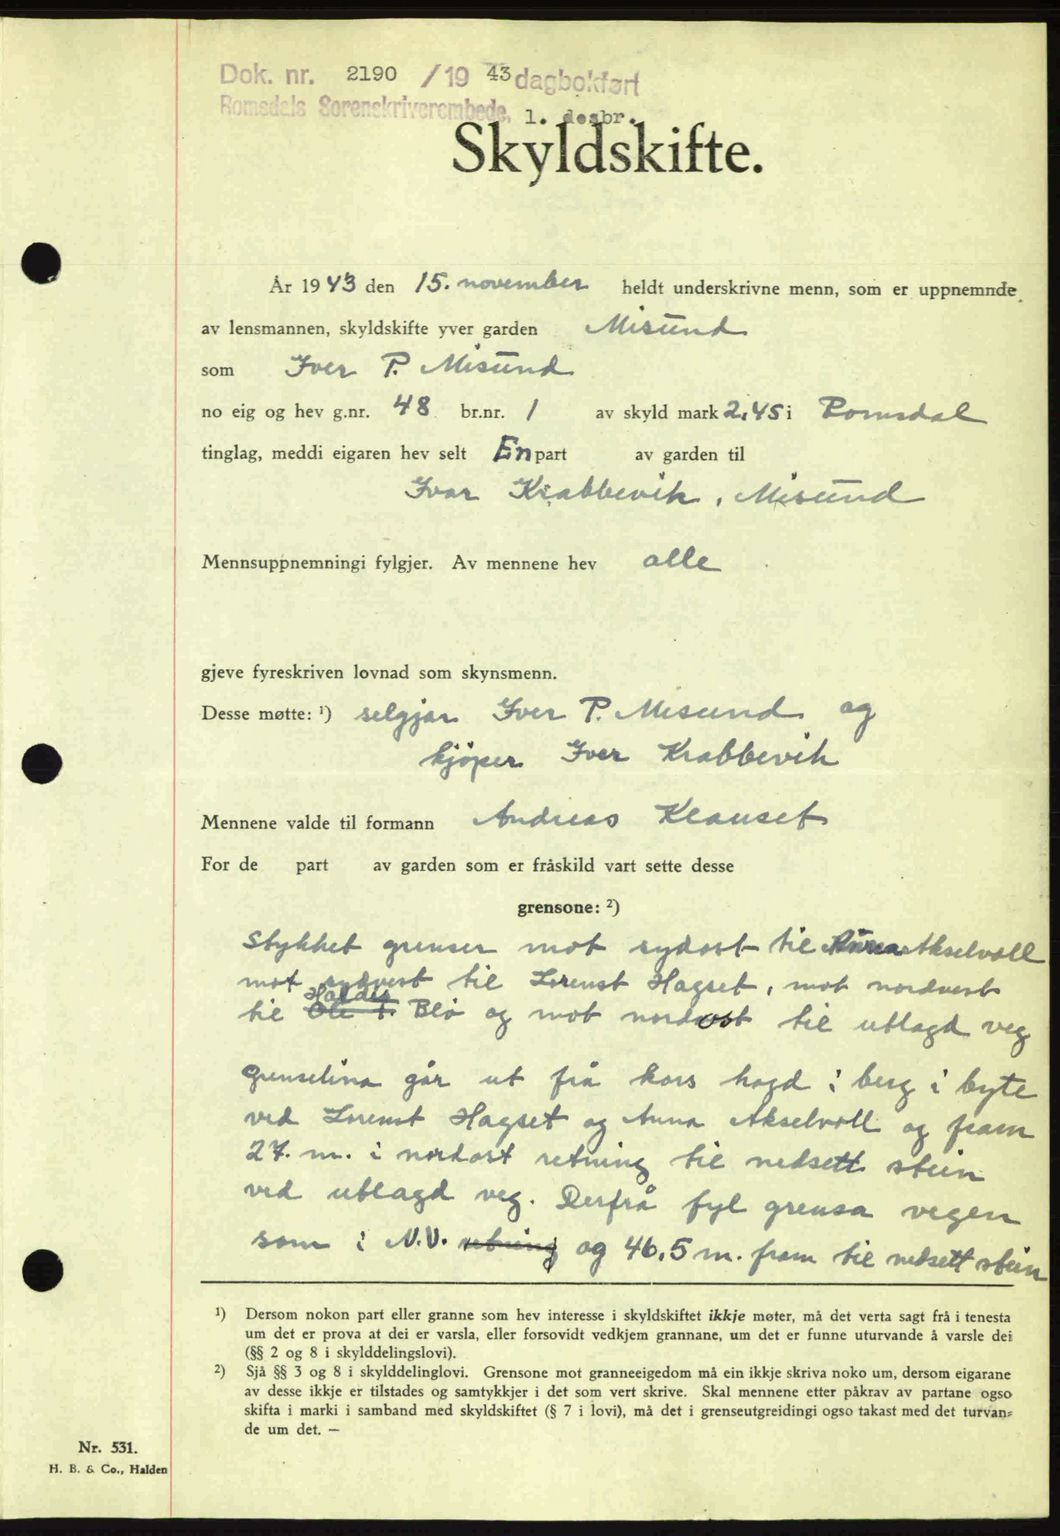 Dok. nr. 2190 /19 43 dagbokført
Romsdals Sorenskriverembede, 1. desbr.
Skyldskifte.
År 1943 den 15. november heldt underskrivne menn, som er uppnemnde
av lensmannen, skyldskifte yver garden Misund
som Iver P. Misund
no eig og hev g.nr. 48 br.nr. 1 av skyld mark 2,45 i Romsdal
tinglag, meddi eigaren hev selt En part av garden til
Ivar Krabbevik, Misund
Mennsuppnemningi fylgjer. Av mennene hev alle
gjeve fyreskriven lovnad som skynsmenn.
Desse møtte: ¹) selgjar Iver P. Misund og
kjöper Iver Krabbevik
Mennene valde til formann Andreas Klauset
For de part av garden som er fråskild vart sette desse
grensone: ²)
Stykket grenser mot sydost til Akselvoll
mot sydvest til Lorents Hagset, mot nordvest
Haldis
til Ole T. Blö og mot nordost til utlagd veg
Grenselina går ut frå kors hogd i berg i byte
ved Lorents Hagset og Anna Akselvoll og fram
27. m. i nordost retning til nedsett stein
ved utlagd veg. Derfrå fyl grensa vegen
som i N.V. retning og 46,5 m. fram til nedsett stein
¹) Dersom nokon part eller granne som hev interesse i skyldskiftet ikkje møter, må det verta sagt frå i tenesta
um det er prova at dei er varsla, eller forsovidt vedkjem grannane, um det er funne uturvande å varsle dei
(§§ 2 og 8 i skylddelingslovi).
²) Sjå §§ 3 og 8 i skylddelinglovi. Grensone mot granneeigedom må ein ikkje skriva noko um, dersom eigarane
av desse ikkje er tilstades og samtykkjer i det som vert skrive. Skal mennene etter påkrav av partane ogso
skifta i marki i samband med skyldskiftet (§ 7 i lovi), må det i grenseutgreidingi ogso takast med det turvan-
de um det. —
Nr. 531.
H. B. & Co., Halden